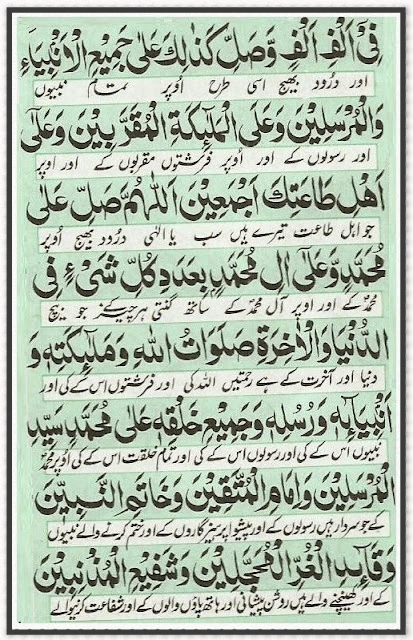 فِیْ اَلْفِ اَلْفٍ وَّصَلِّ كَذٰلِكَ عَلٰى جَمِیْعِ الْاَنْۢبِیَآءِ
اور درُود بھیج اسی طرح اُوپر تمام نبیوں
وَالْمُرْسَلِیْنَ وَعَلَى الْمَلٰٓئِكَةِ الْمُقَرَّبِیْنَ وَعَلٰٓى
اور رسولوں کے اور اُوپر فرشتوں مقربوں کے اور اوپر
اَهْلِ طَاعَتِكَ اَجْمَعِیْنَ اَللّٰهُمَّ صَلِّ عَلٰى
جو اہل طاعت تیرے ہیں سب یا الٰہی درُود بھیج اُوپر
مُحَمَّدٍ وَّعَلٰٓى اٰلِ مُحَمَّدٍۭ بِعَدَدِ كُلِّ شَیْءٍ فِی
محمدؐ کے اور اوپر آل محمدؐ کے ساتھ گنتی ہر چیز کے جو بیچ
الدُّنْیَا وَالْاٰخِرَةِ صَلَوَاتُ اللّٰهِ وَمَلٰٓئِكَتِهٖ وَ
دنیا اور آخرت کے ہے رحمتیں اللہ کی اور فرشتوں اس کے کی اور
اَنْۢبِیَآئِهٖ وَرُسُلِهٖ وَجَمِیْعِ خَلْقِهٖ عَلٰى مُحَمَّدٍ سَیِّدِ
نبیوں اس کے کی اور رسولوں اس کے کی اور تمام خلقت اس کے کی اُوپر محمدؐ
الْمُرْسَلِیْنَ وَاِمَامِ الْمُتَّقِیْنَ وَخَاتِمِ النَّبِیّٖنَ
کے جو سردار ہیں رسولوں کے اور پیشوا پرہیزگاروں کے اور ختم کرنے والے نبیوں
وَقَآئِدِ الْغُرِّ الْمُحَجَّلِیْنَ وَشَفِیْعِ الْمُذْنِبِیْنَ
کے اور کھینچنے والے ہیں روشن پیشانی اور ہاتھ پاؤں والوں کے اور شفاعت کرنیوالے